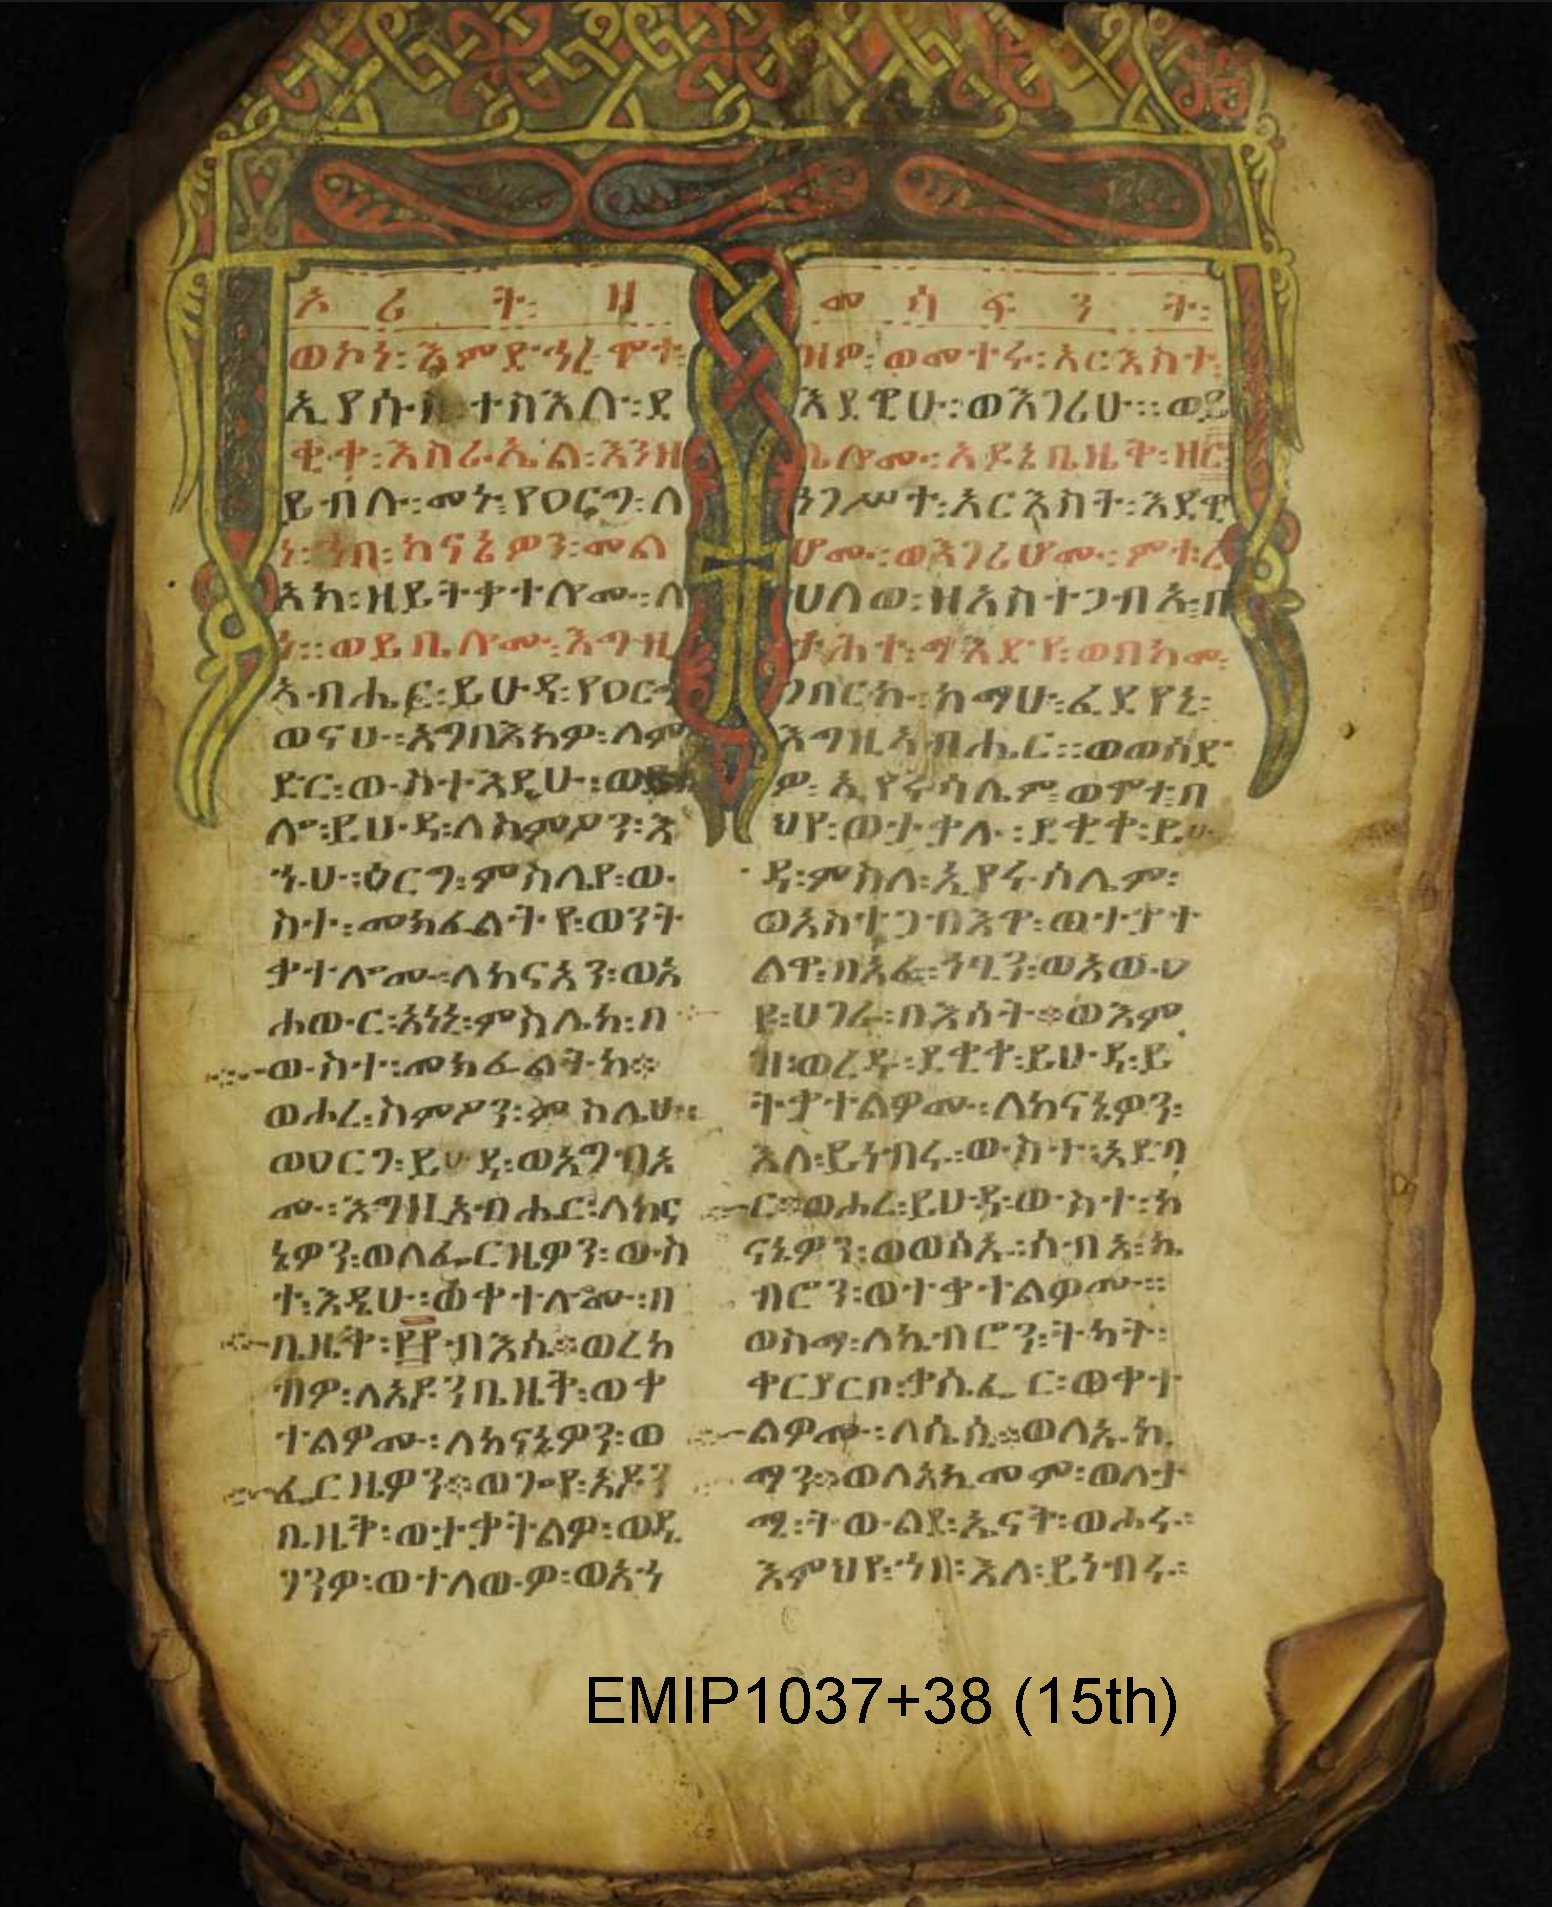 ኦሪት፡ ዘ
መሳፍንት፡
ወኮነ፡ እምድኅረ፡ ሞተ፡
ኢያሱ፡ ተስእሉ፡ ደ
ቂቀ፡ እስራኤል፡ እንዘ
ይብሉ፡ መኑ፡ የዐርግ፡ ለ
ነ፡ ኀበ፡ ከናኔዎን፡ መል
እክ፡ ዘይትቃተሎሙ፡ ለ
ነ፡፡ ወይቤሎሙ፡ እግዚ
አብሔር፡ ይሁዳ፡ የዐርግ
ወናሁ፡ አግባእክዎ፡ ለም
ድር፡ ውስተ፡ እዴሁ፡
ሎ፡ ይሁዳ፡ ለስምዖን፡ እ
ኁሁ፡ ዕርግ፡ ምስሌየ፡ ው
ስተ፡ መክፈልትየ፡ ወንት
ቃተሎሙ፡ ለከናእን፡ ወእ
ሐውር፡ አነኒ፡ ምስሌከ፡ በ
ውስተ፡ መክፈልትከ።
ወሖረ፡ ስምዖን፡ ምስሌሁ፡፡
ወዐርገ፡ ይሁዳ፡ ወአግብአ
ሙ፡ እግዚአብሔር፡ ለከና
ኔዎን፡ ወለፌርዜዎን፡ ውስ
ተ፡ እዴሁ፡ ወቀተሎሙ፡ በ
ቤዜቅ፡ ፻፻ብእሲ። ወረከ
ብዎ፡ ለአዶንቤዜቅ፡ ወቀ
ተልዎሙ፡ ለከናኔዎን፡ ወ
ፌርዜዎን። ወጐየ፡ አዶን
ቤዜቅ፡ ወታቃትልዎ፡ ወዴ
ገንዎ፡ ወተለውዎ፡ ወአኀ
ዝዎ፡ ወመተሩ፡ አርእስተ፡
እደዊሁ፡ ወእገሪሁ፡፡ ወይ
ቤሎሙ፡ አዶኔቤዜቅ፡
ነገሥት፡ አርእስት፡ እደዊ
ሆሙ፡ ወእገሪሆሙ፡ ምቱረ
ሀለው፡ ዘአስተጋብኡ፡ በ
ታሕተ፡ ማእድየ፡ ወበከመ፡
ገበርኩ፡ ከማሁ፡ ፈደየኒ፡
እግዚአብሔር፡፡ ወወሰድ
ዎ፡ ኢየሩሳሌም፡ ወሞተ፡ በ
ህየ፡ ወታቃተሉ፡ ደቂቀ፡ ይሁ
ዳ፡ ምስለ፡ ኢየሩሳሌም፡
ወአስተጋብእዋ፡ ወታቃተ
ልዋ፡ በአፈ፡ ኀፂን፡ ወአውዐ
ዩ፡ ሀገራ፡ በእሳት። ወእም
ዝ፡ ወረዱ፡ ደቂቀ፡ ይሁዳ፡ ይ
ትቃተልዎሙ፡ ለከናኔዎን፡
እለ፡ ይነብሩ፡ ውስተ፡ አድባ
ር። ወሖረ፡ ይሁዳ፡ ውስተ፡ ከ
ናኔዎን፡ ወወፅኡ፡ ሰብአ፡ ኬ
ብሮን፡ ወተቃተልዎሙ፡፡
ወስማ፡ ለኬብሮን፡ ትካት፡
ቀርያርቦ፡ ቃሴፌር፡ ወቀተ
ልዎሙ፡ ለሴሲ። ወለኢኪ
ማን። ወለአኪመም፡ ወለታ
ሚ፡ ትውልደ፡ ኤናት፡ ወሖሩ፡
እምህየ፡ ኀበ፡ እለ፡ ይነብሩ፡
EMIP1037+38 (15th)